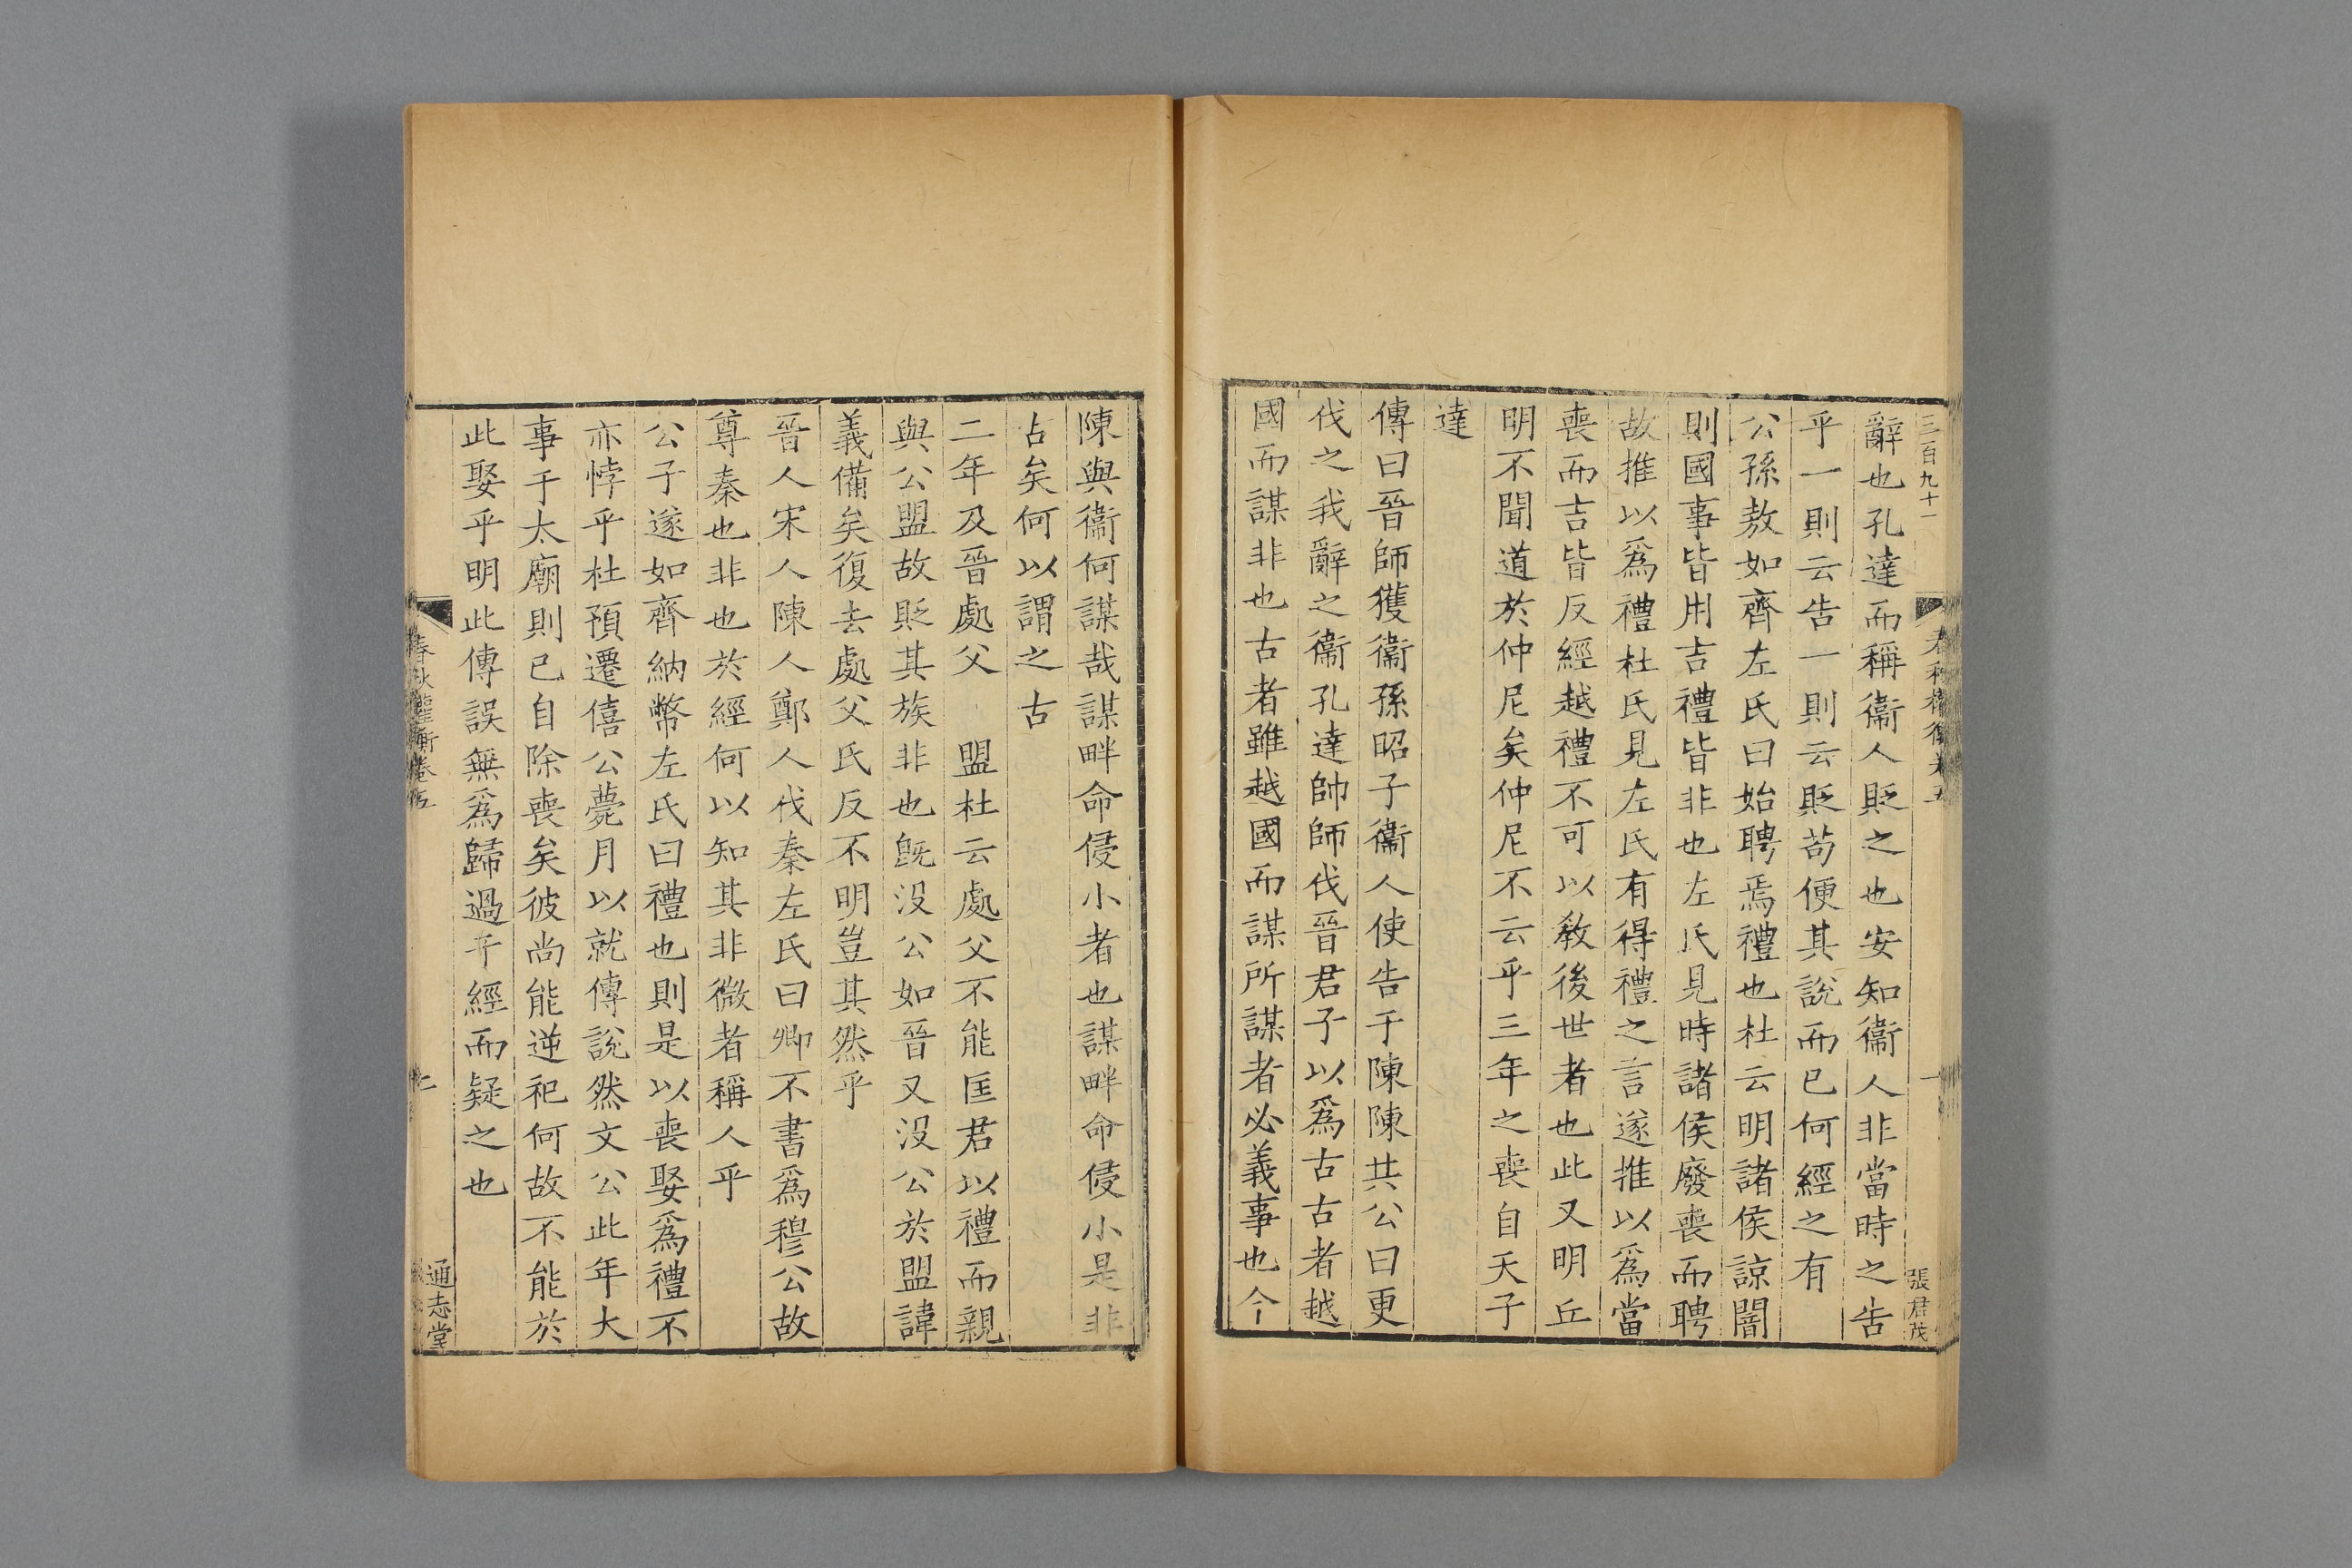 三百九十一
張君茂
辭也孔達而稱衞人貶之也安知衞人非當時之告
乎一則云告一則云貶苟便其說而已何經之有
公孫敖如齊左氏曰始聘焉禮也杜云明諸侯諒闇
則國事皆用吉禮皆非也左氏見時諸侯廢喪而聘
故推以爲禮杜氏見左氏有得禮之言遂推以爲當
喪而吉皆反經越禮不可以敎後世者也此又明丘
明不聞道於仲尼矣仲尼不云乎三年之喪自天子
達
傳曰晉師獲衞孫昭子衞人使告于陳陳共公曰更
伐之我辭之衞孔達帥師伐晉君子以爲古古者越
國而謀非也古者雖越國而謀所謀者必義事也今
陳與衞何謀哉謀畔命侵小者也謀畔命侵小是非
占矣何以謂之古
二年及晉處父 盟杜云處父不能匡君以禮而親
與公盟故貶其族非也旣没公如晉又没公於盟諱
義備矣復去處父氏反不明豈其然乎
晉人宋人陳人鄭人伐秦左氏曰卿不書爲穆公故
尊秦也非也於經何以知其非微者稱人乎
公子遂如齊納幣左氏曰禮也則是以喪娶爲禮不
亦悖乎杜預遷僖公薨月以就傳說然文公此年大
事于太廟則已自除喪矣彼尚能逆祀何故不能於
此娶乎明此傳誤無爲歸過乎經而疑之也
春秋權衡卷五
通志堂